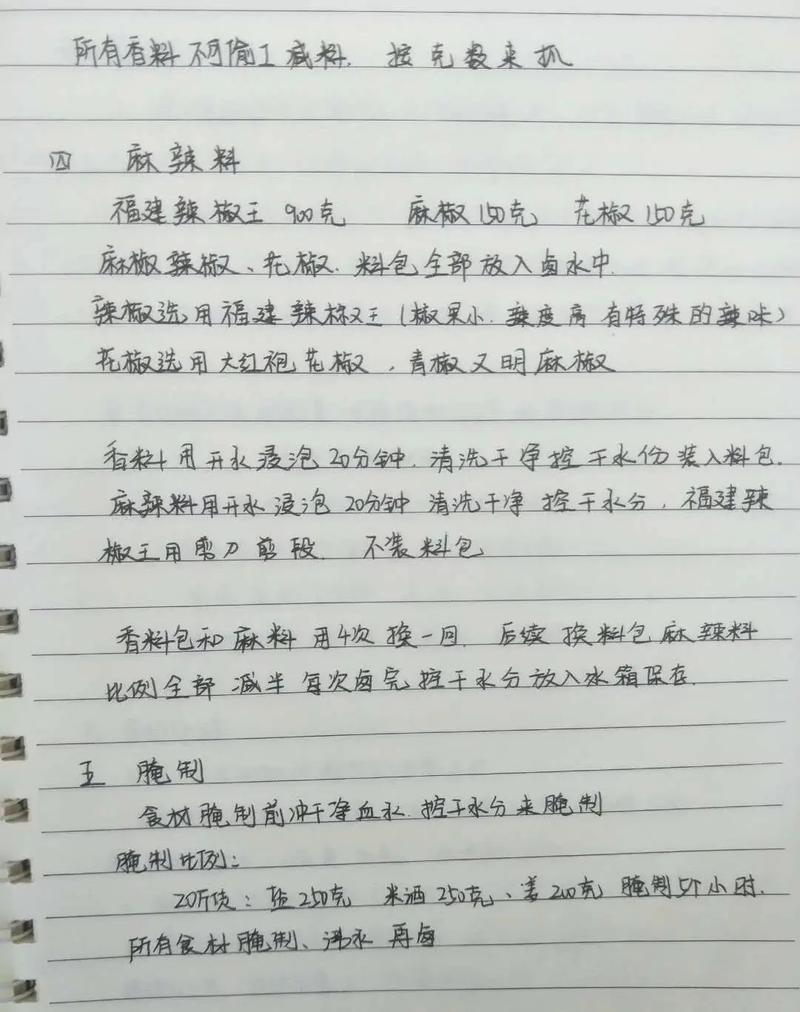 所有香料不可偷工减料.按克数来抓
四 麻辣料
福建辣椒王 900克 麻椒150克 花椒150克
麻椒辣椒、花椒.料包全部放入卤水中.
辣椒选用福建辣椒王(椒果小.辣度高有特殊的辣味)
花椒选用大红袍花椒,青椒又明麻椒
香料用开水浸泡20分钟.清洗干净控干水份装入料包.
麻辣料用开水浸泡20分钟 清洗干净 控干水分,福建辣
椒王用剪刀剪段. 不装料包
香料包和麻料用4次换一回. 后续换料包麻辣料
比例全部减半 每次卤完控干水分放入冰箱保存.
五 腌制
食材腌制前冲干净血水.控干水分来腌制
腌制比例:
20斤货:盐250克 米酒250克、姜200克 腌制5个小时.
所有食材腌制、沸水再卤